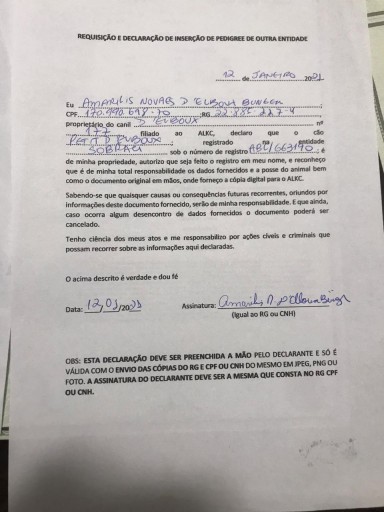 REQUISIÇÃO E DECLARAÇÃO DE INSERÇÃO DE PEDIGREE DE OUTRA ENTIDADE
12 de JANEIRO 20
Eu AMARILIS NOVAES D
CPF RG
proprietário do canil D'ELBOUX nº
177 filiado ao ALKC, declaro que o cão
D'ELBOUX registrado entidade
SOBRACI sob o número de registro é
de minha propriedade, autorizo que seja feito o registro em meu nome, e reconheço
que é de minha total responsabilidade os dados fornecidos e a posse do animal bem
como o documento original em mãos, onde forneço a cópia digital para o ALKC.
Sabendo-se que quaisquer causas ou consequências futuras recorrentes, oriundos por
informações deste documento fornecido, serão de minha responsabilidade. E que ainda,
caso ocorra algum desencontro de dados fornecidos o documento poderá ser
cancelado.
Tenho ciência dos meus atos e me responsabilizo por ações cíveis e criminais que
possam recorrer sobre as informações aqui declaradas.
O acima descrito é verdade e dou fé
Data: 12/01/20 Assinatura:
(Igual ao RG ou CNH)
OBS: ESTA DECLARAÇÃO DEVE SER PREENCHIDA A MÃO PELO DECLARANTE E SÓ É
VÁLIDA COM O ENVIO DAS CÓPIAS DO RG E CPF OU CNH DO MESMO EM JPEG, PNG OU
FOTO. A ASSINATURA DO DECLARANTE DEVE SER A MESMA QUE CONSTA NO RG CPF
OU CNH.